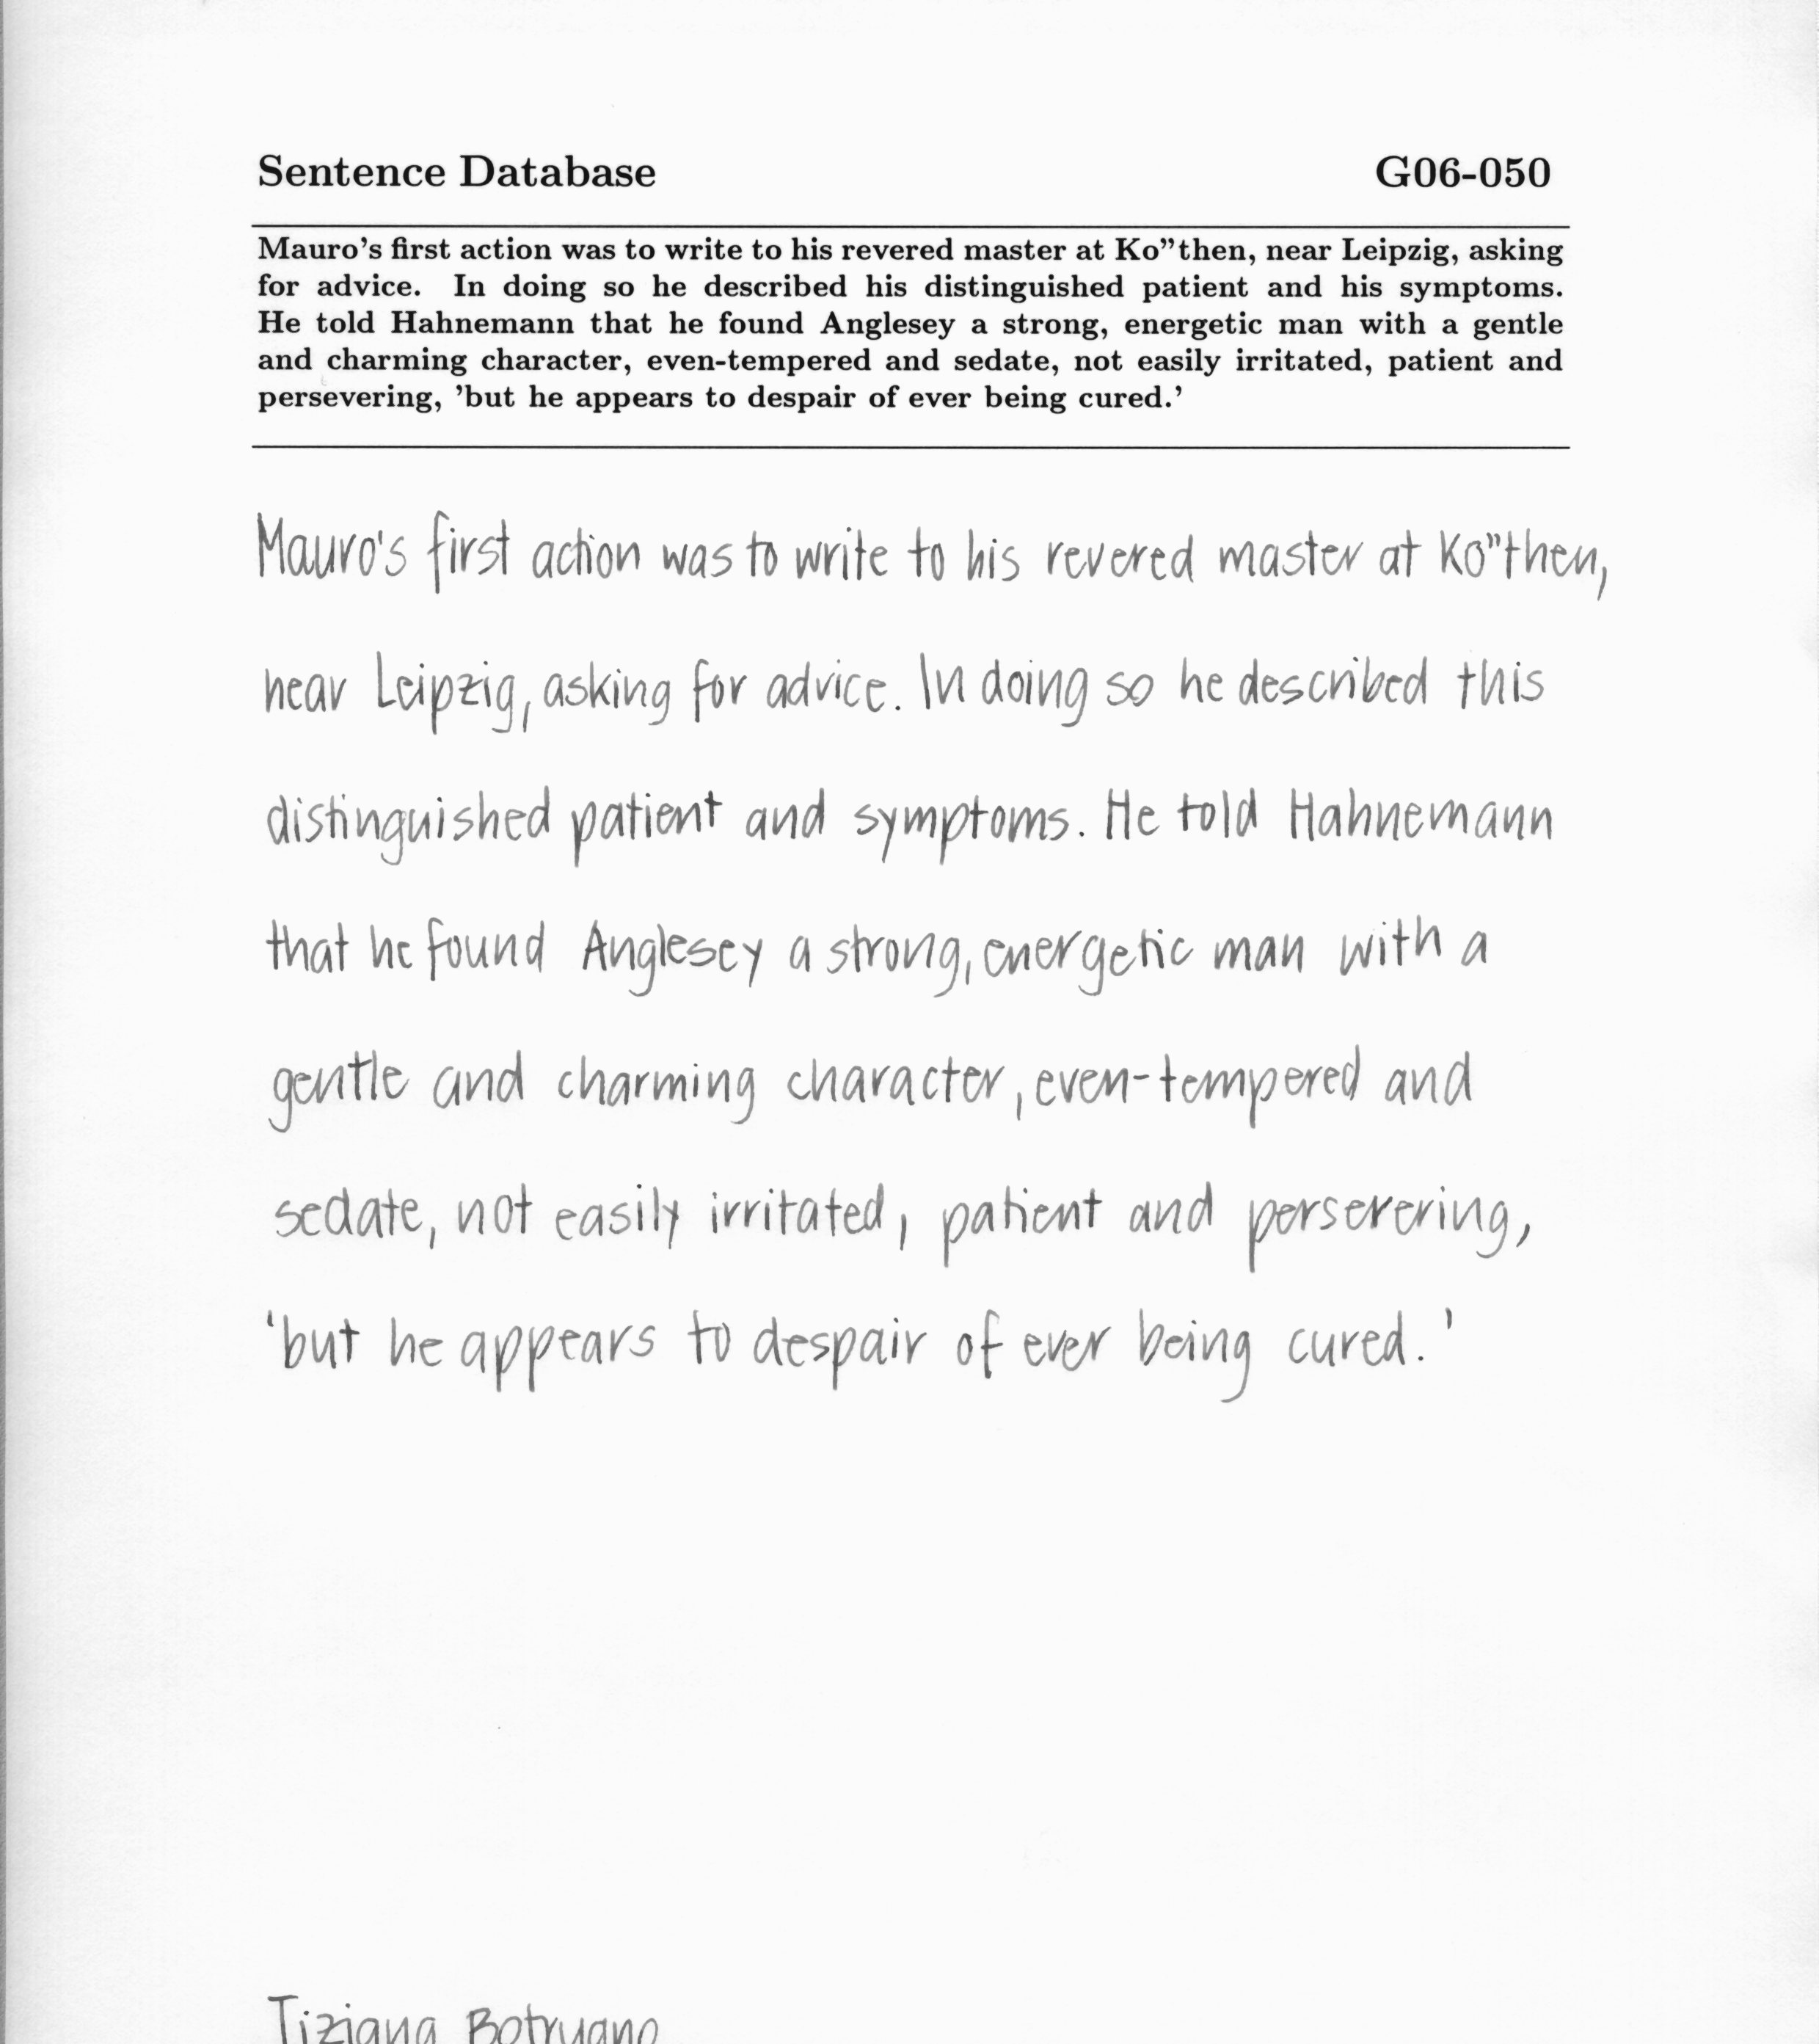 Sentence Database G06-050
Mauro's first action was to write to his revered master at Ko"then, near Leipzig, asking
for advice. In doing so he described his distinguished patient and his symptoms.
He told Hahnemann that he found Anglesey a strong, energetic man with a gentle
and charming character, even-tempered and sedate, not easily irritated, patient and
persevering, 'but he appears to despair of ever being cured.'
Mauro's first action was to write to his revered master at Ko"then,
near Leipzig, asking for advice. In doing so he described this
distinguished patient and symptoms. He told Hahnemann
that he found Anglesey a strong, energetic man with a
gentle and charming character, even-tempered and
sedate, not easily irritated, patient and persevering,
'but he appears to despair of ever being cured.'
Tiziana